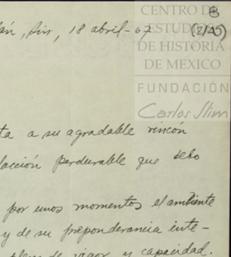 CENTRO DE
ESTUDIOS
DE HISTORIA
DE MÉXICO
FUNDACIÓN
Carlos Slim
8
(2/A5)
18 abril-67
ta a su agradable rincón
lación perdurable que debo
por unos momentos el ambiente
y de su preponderancia inte-
de vigor y capacidad.